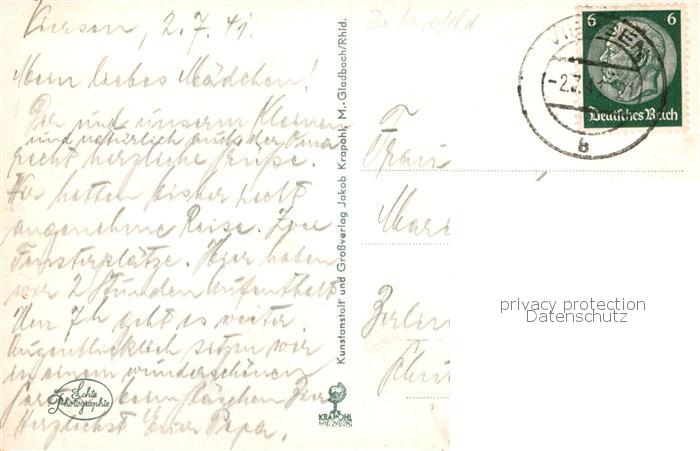 Viersen, 2.7.41.
Mein liebes Mädchen!
Dir und unserm Kleinen
und natürlich auch der Oma
recht herzliche Grüße.
Wir hatten bisher recht
angenehme Reise. Zwei
Fensterplätze. Hier haben
wir 2 Stunden Aufenthalt
Um 7h geht es weiter.
Augenblicklich sitzen wir
in einem wunderschönen
Garten beim Gläschen Bier
Herzlichst Euer Papa.
Echte
Photographie
Kunstanstalt und Großverlag Jakob Krapohl, M.-Gladbach/Rhld.
KRAPOHL
Z. Krefeld
6 6
Deutsches Reich
VIERSEN
-2.7.41
b
Frau
Berlin
privacy protection
Datenschutz